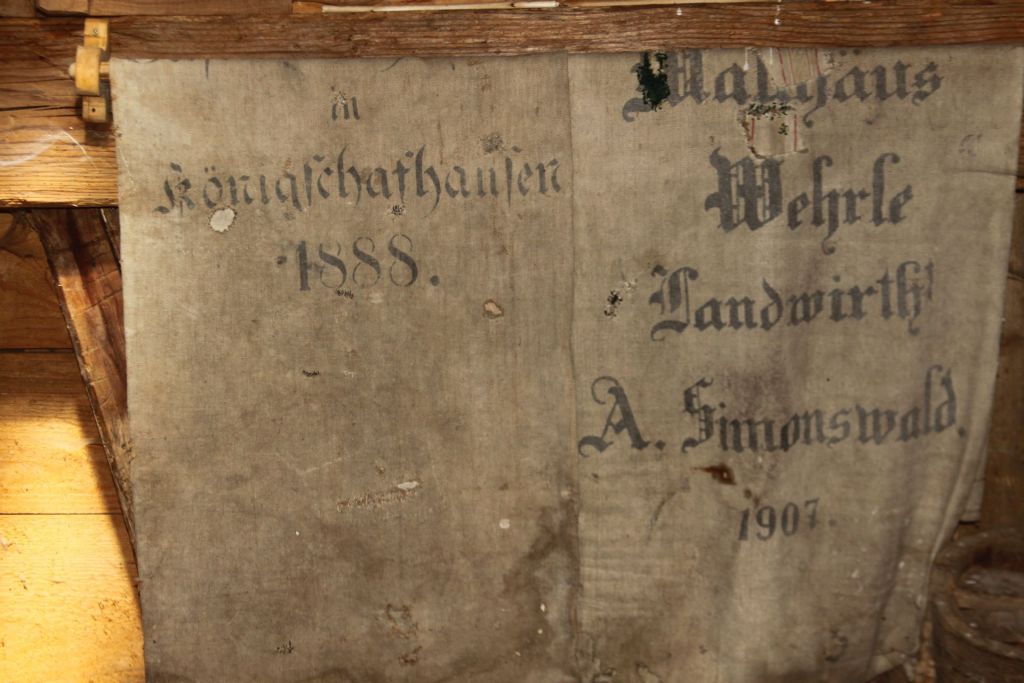 in
Königschafhausen
1888.
Matthäus
Wehrle
Landwirth
A. Simonswald.
1907.